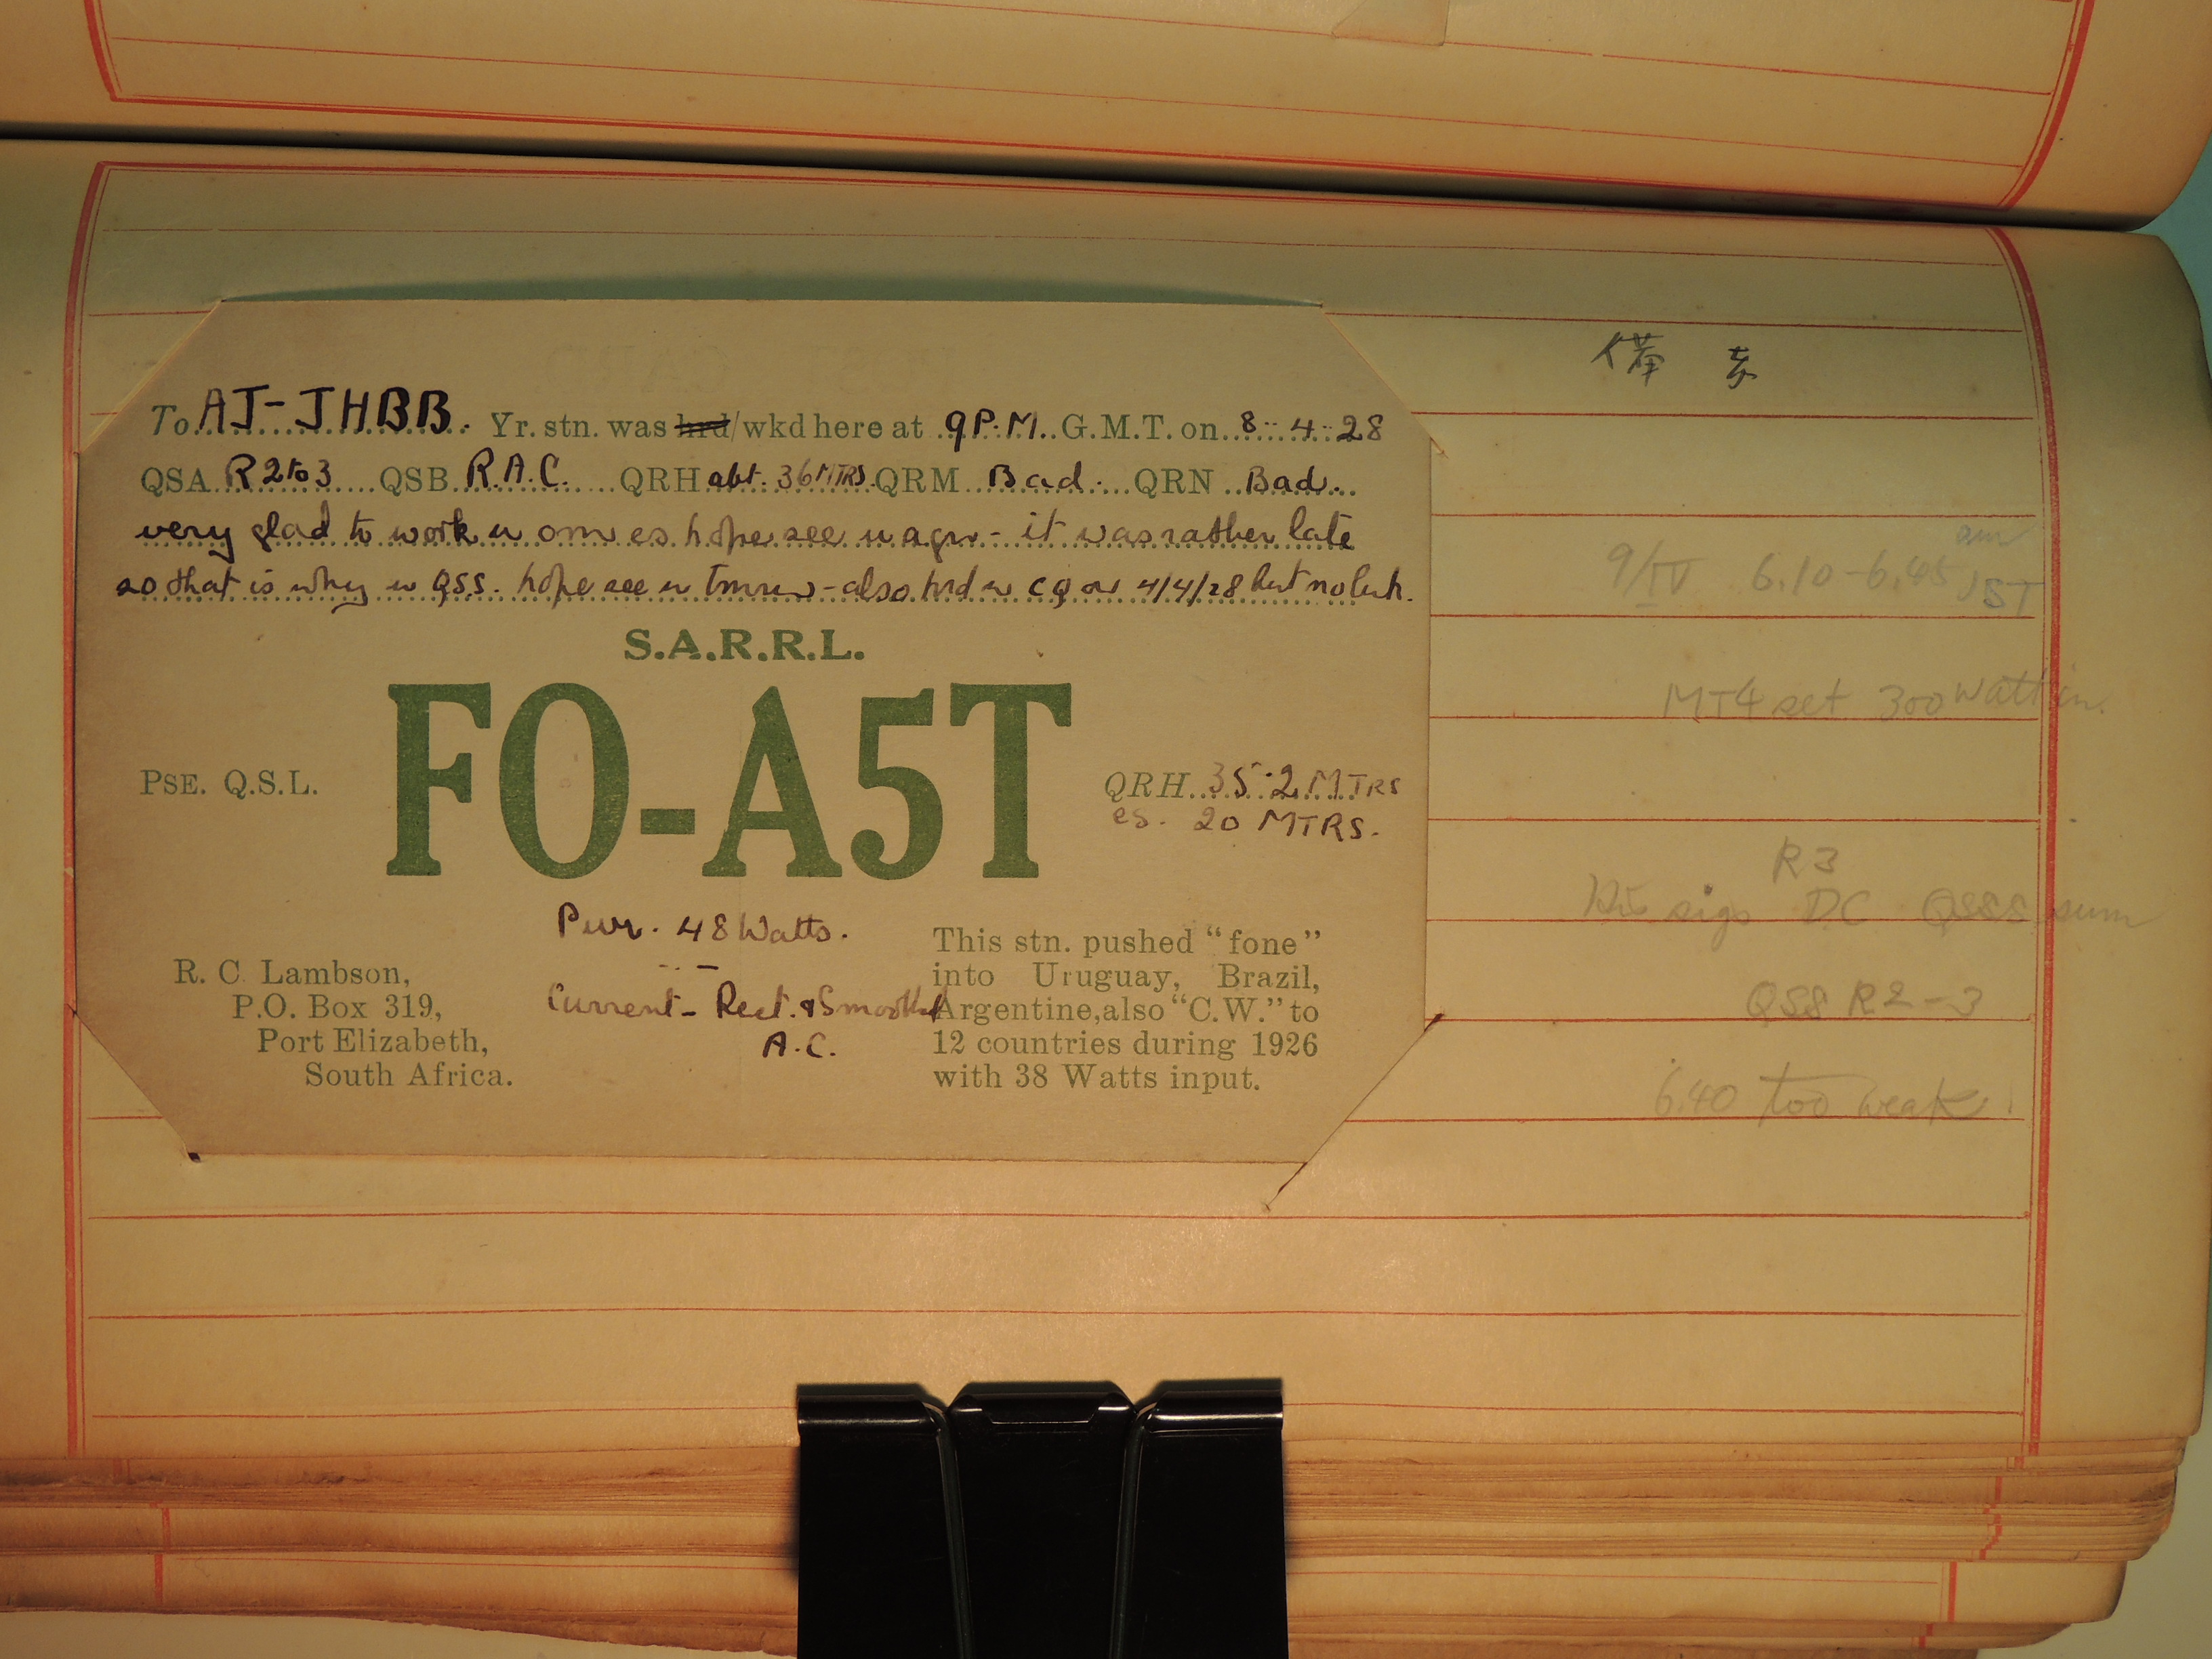 To AJ-JHBB. Yr. stn. was hrd/wkd here at 9P.M. G.M.T. on 8-4-28
QSA R 2 to 3 QSB R.A.C. QRH abt. 36 MTRS. QRM Bad. QRN Bad.
very glad to work u om es hope see u agn - it was rather late
so that is why u QSS. hope see u tmrw - also hrd u CQ on 4/4/28 but no luk.
S.A.R.R.L.
FO-A5T
PSE. Q.S.L.
QRH. 35.2 MTRS
es. 20 MTRS.
Pwr. 48 Watts.
Current - Rect. & Smoothed
A.C.
R. C. Lambson,
P.O. Box 319,
Port Elizabeth,
South Africa.
This stn. pushed "fone"
into Uruguay, Brazil,
Argentine, also "C.W." to
12 countries during 1926
with 38 Watts input.
備考
9/IV 6.10-6.45 am JST
MT4 set 300 watt in.
R3
His sigs DC QSSS sum
QSS R2-3
6.40 too weak.